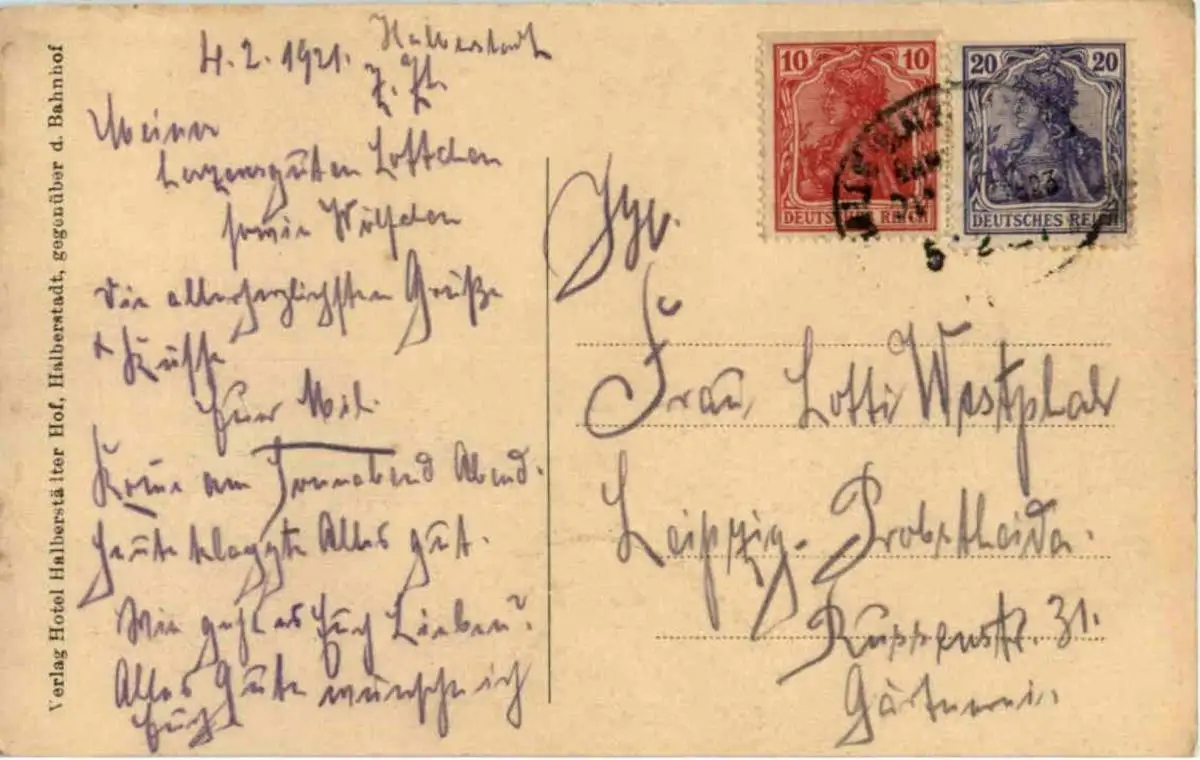 Verlag Hotel Halberstälter Hof, Halberstadt, gegenüber d. Bahnhof
4.2.1921. Halberstadt
z. Zt.
Meinem
herzensguten Lottchen
sowie Wölfchen
die allerherzlichsten Grüße
+ Küsse
Euer
Kome am Sonnabend Abend.
Heute klappte Alles gut.
Wie geht es Euch Lieben?
Alles Gute wünsche ich
Euch
10 10
DEUTSCHES REICH
20 20
DEUTSCHES REICH
Frau Lotti Westphal
Leipzig-Probstheida.
Russenstr. 31.
Gärtnerei.